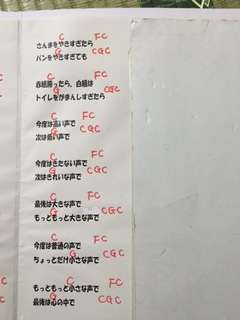 C FC
さんまをやきすぎたら
G CGC
パンをやきすぎても
C FC
赤組勝ったら、白組は
G CGC
トイレをがまんしすぎたら
C FC
今度は高い声で
G CGC
次は低い声で
C FC
今度はきたない声で
G CGC
次はきれいな声で
C FC
最後は大きな声で
G CGC
もっともっと大きな声で
C FC
今度は普通の声で
G CGC
ちょっとだけ小さな声で
C FC
もっともっと小さな声で
G CGC
最後は心の中で